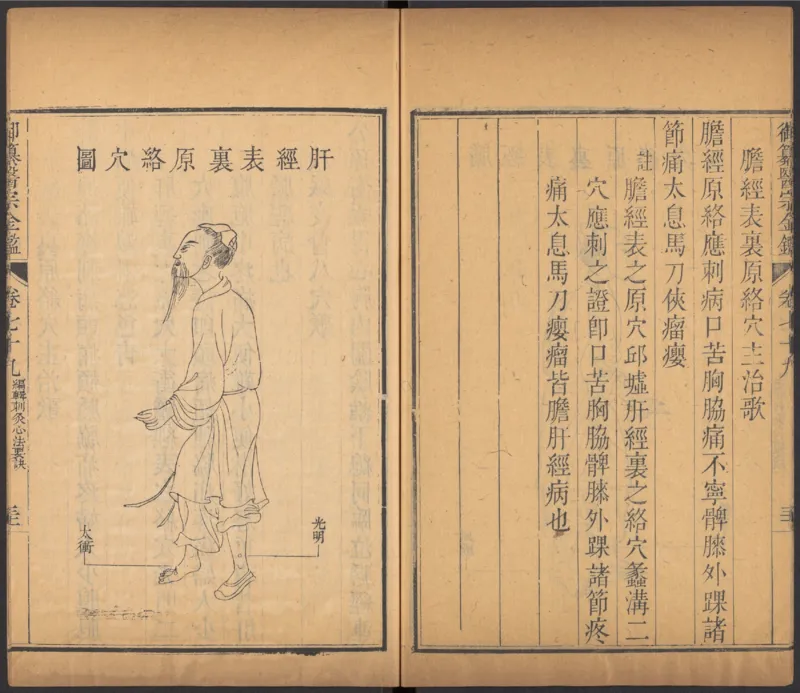 御纂醫宗金鑑 卷七十九 三
膽經表裏原絡穴主治歌
膽經原絡應刺病口苦胸脇痛不寧髀膝外踝諸
節痛太息馬刀俠瘤癭
註
膽經表之原穴邱墟肝經裏之絡穴蠡溝二
穴應刺之證卽口苦胸脇髀膝外踝諸節疼
痛太息馬刀癭瘤皆膽肝經病也
肝經表裏原絡穴圖
光明
太衝
御纂醫宗金鑑 卷七十九 編輯刺灸心法要訣